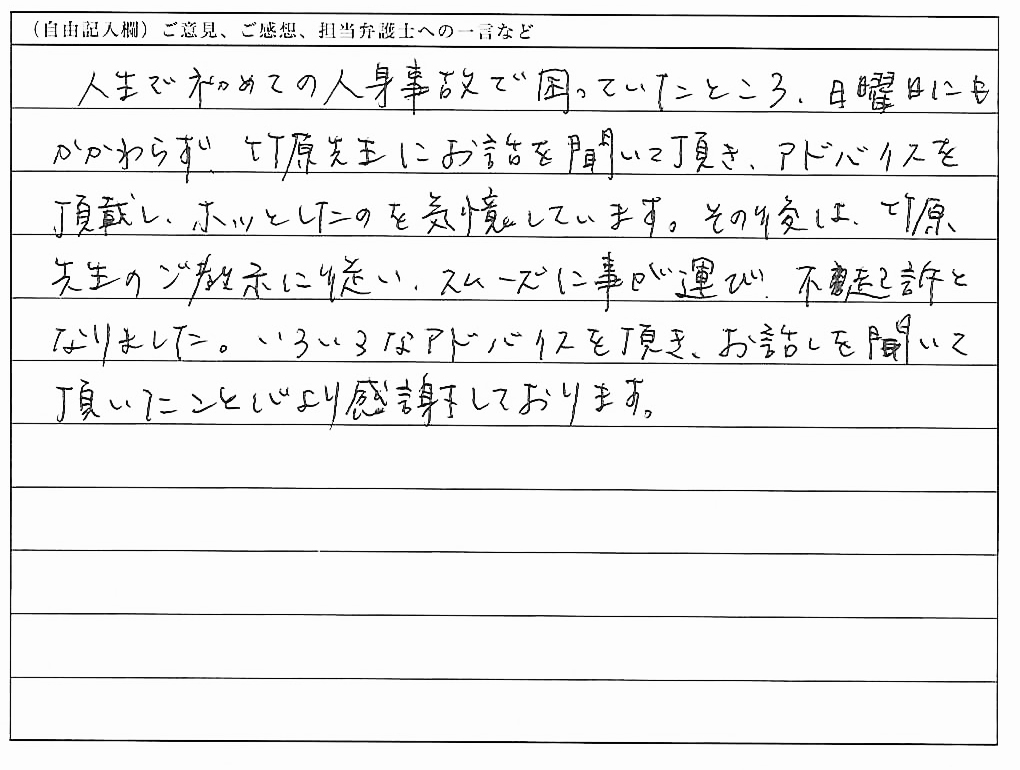 （自由記入欄）ご意見、ご感想、担当弁護士への一言など
人生で初めての人身事故で困っていたところ、日曜日にも
かかわらず、竹原先生にお話を聞いて頂き、アドバイスを
頂戴し、ホッとしたのを気憶しています。その後は、竹原
先生のご教示に従い、スムーズに事が運び、不起訴と
なりました。いろいろなアドバイスを頂き、お話しを聞いて
頂いたこと心より感謝しております。